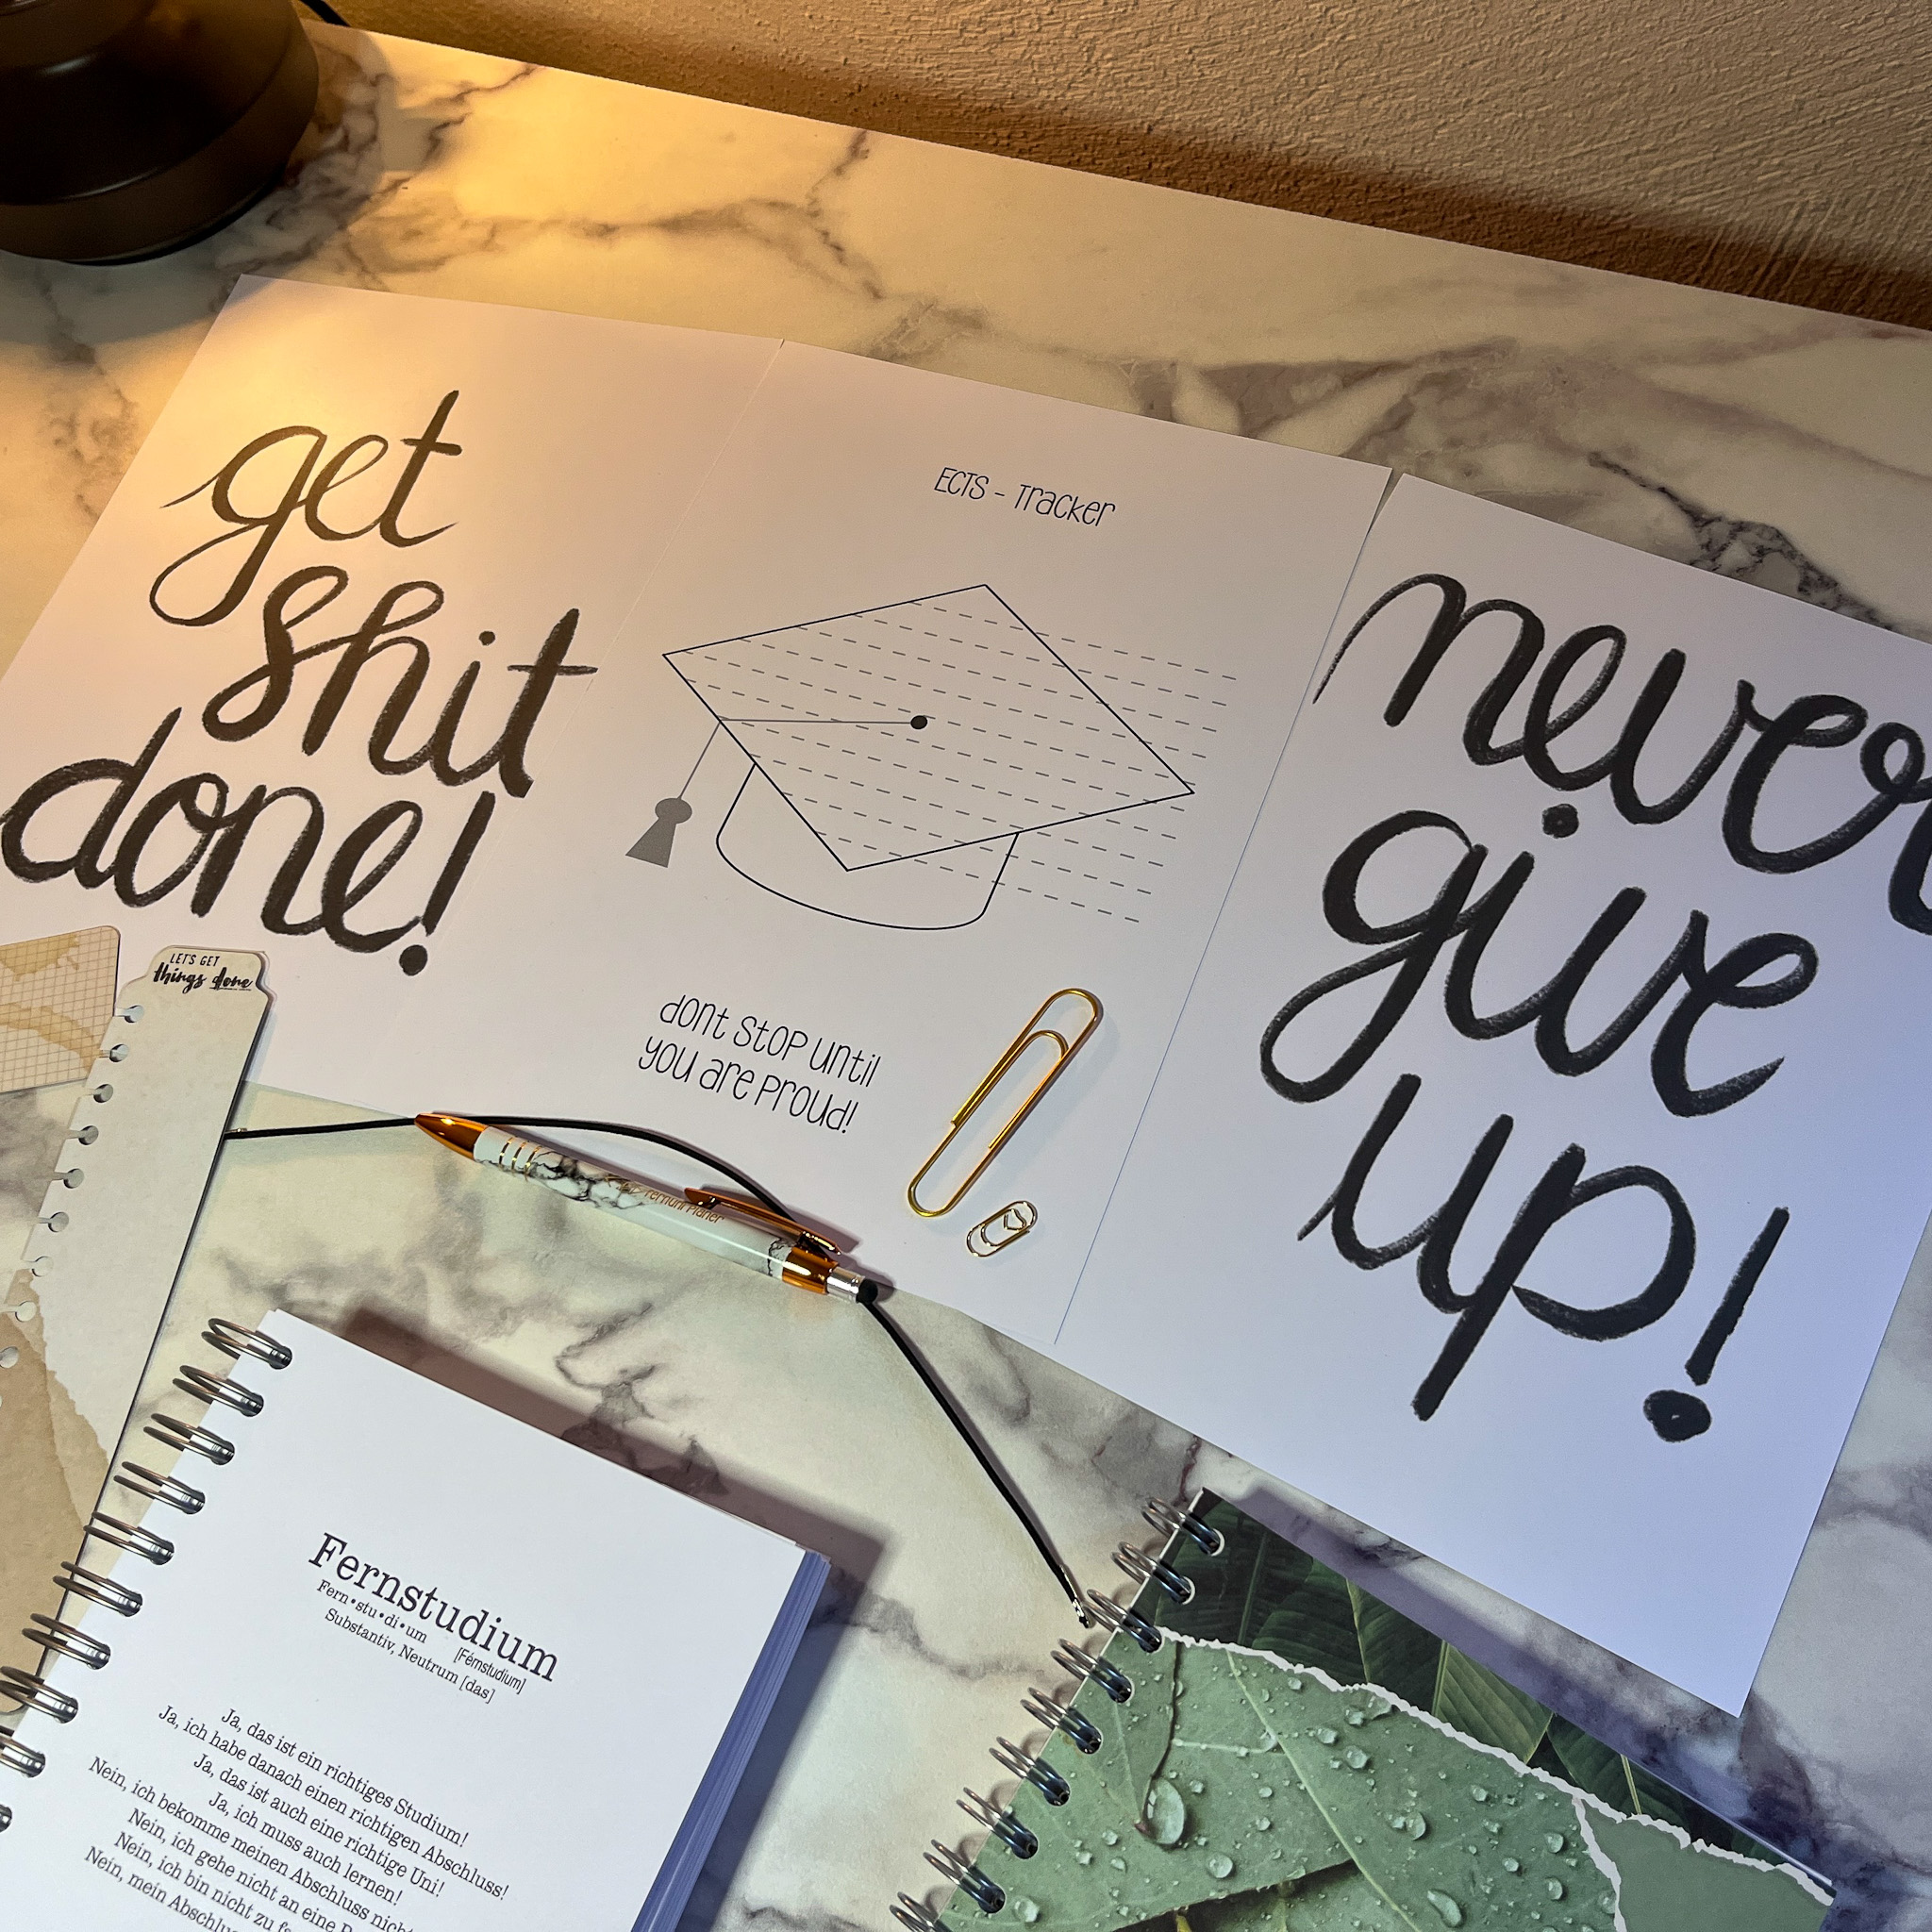 get
shit
done!
ECTS - Tracker
dont stop until
you are proud!
never
give
up!
LET'S GET
things done
Fernuni Planer
Fernstudium
Fern•stu•di•um
[Férnstudium]
Substantiv, Neutrum [das]
Ja, das ist ein richtiges Studium!
Ja, ich habe danach einen richtigen Abschluss!
Ja, das ist auch eine richtige Uni!
Ja, ich muss auch lernen!
Nein, ich bekomme meinen Abschluss
Nein, ich gehe nicht an eine
Nein, ich bin nicht zu
Nein, mein